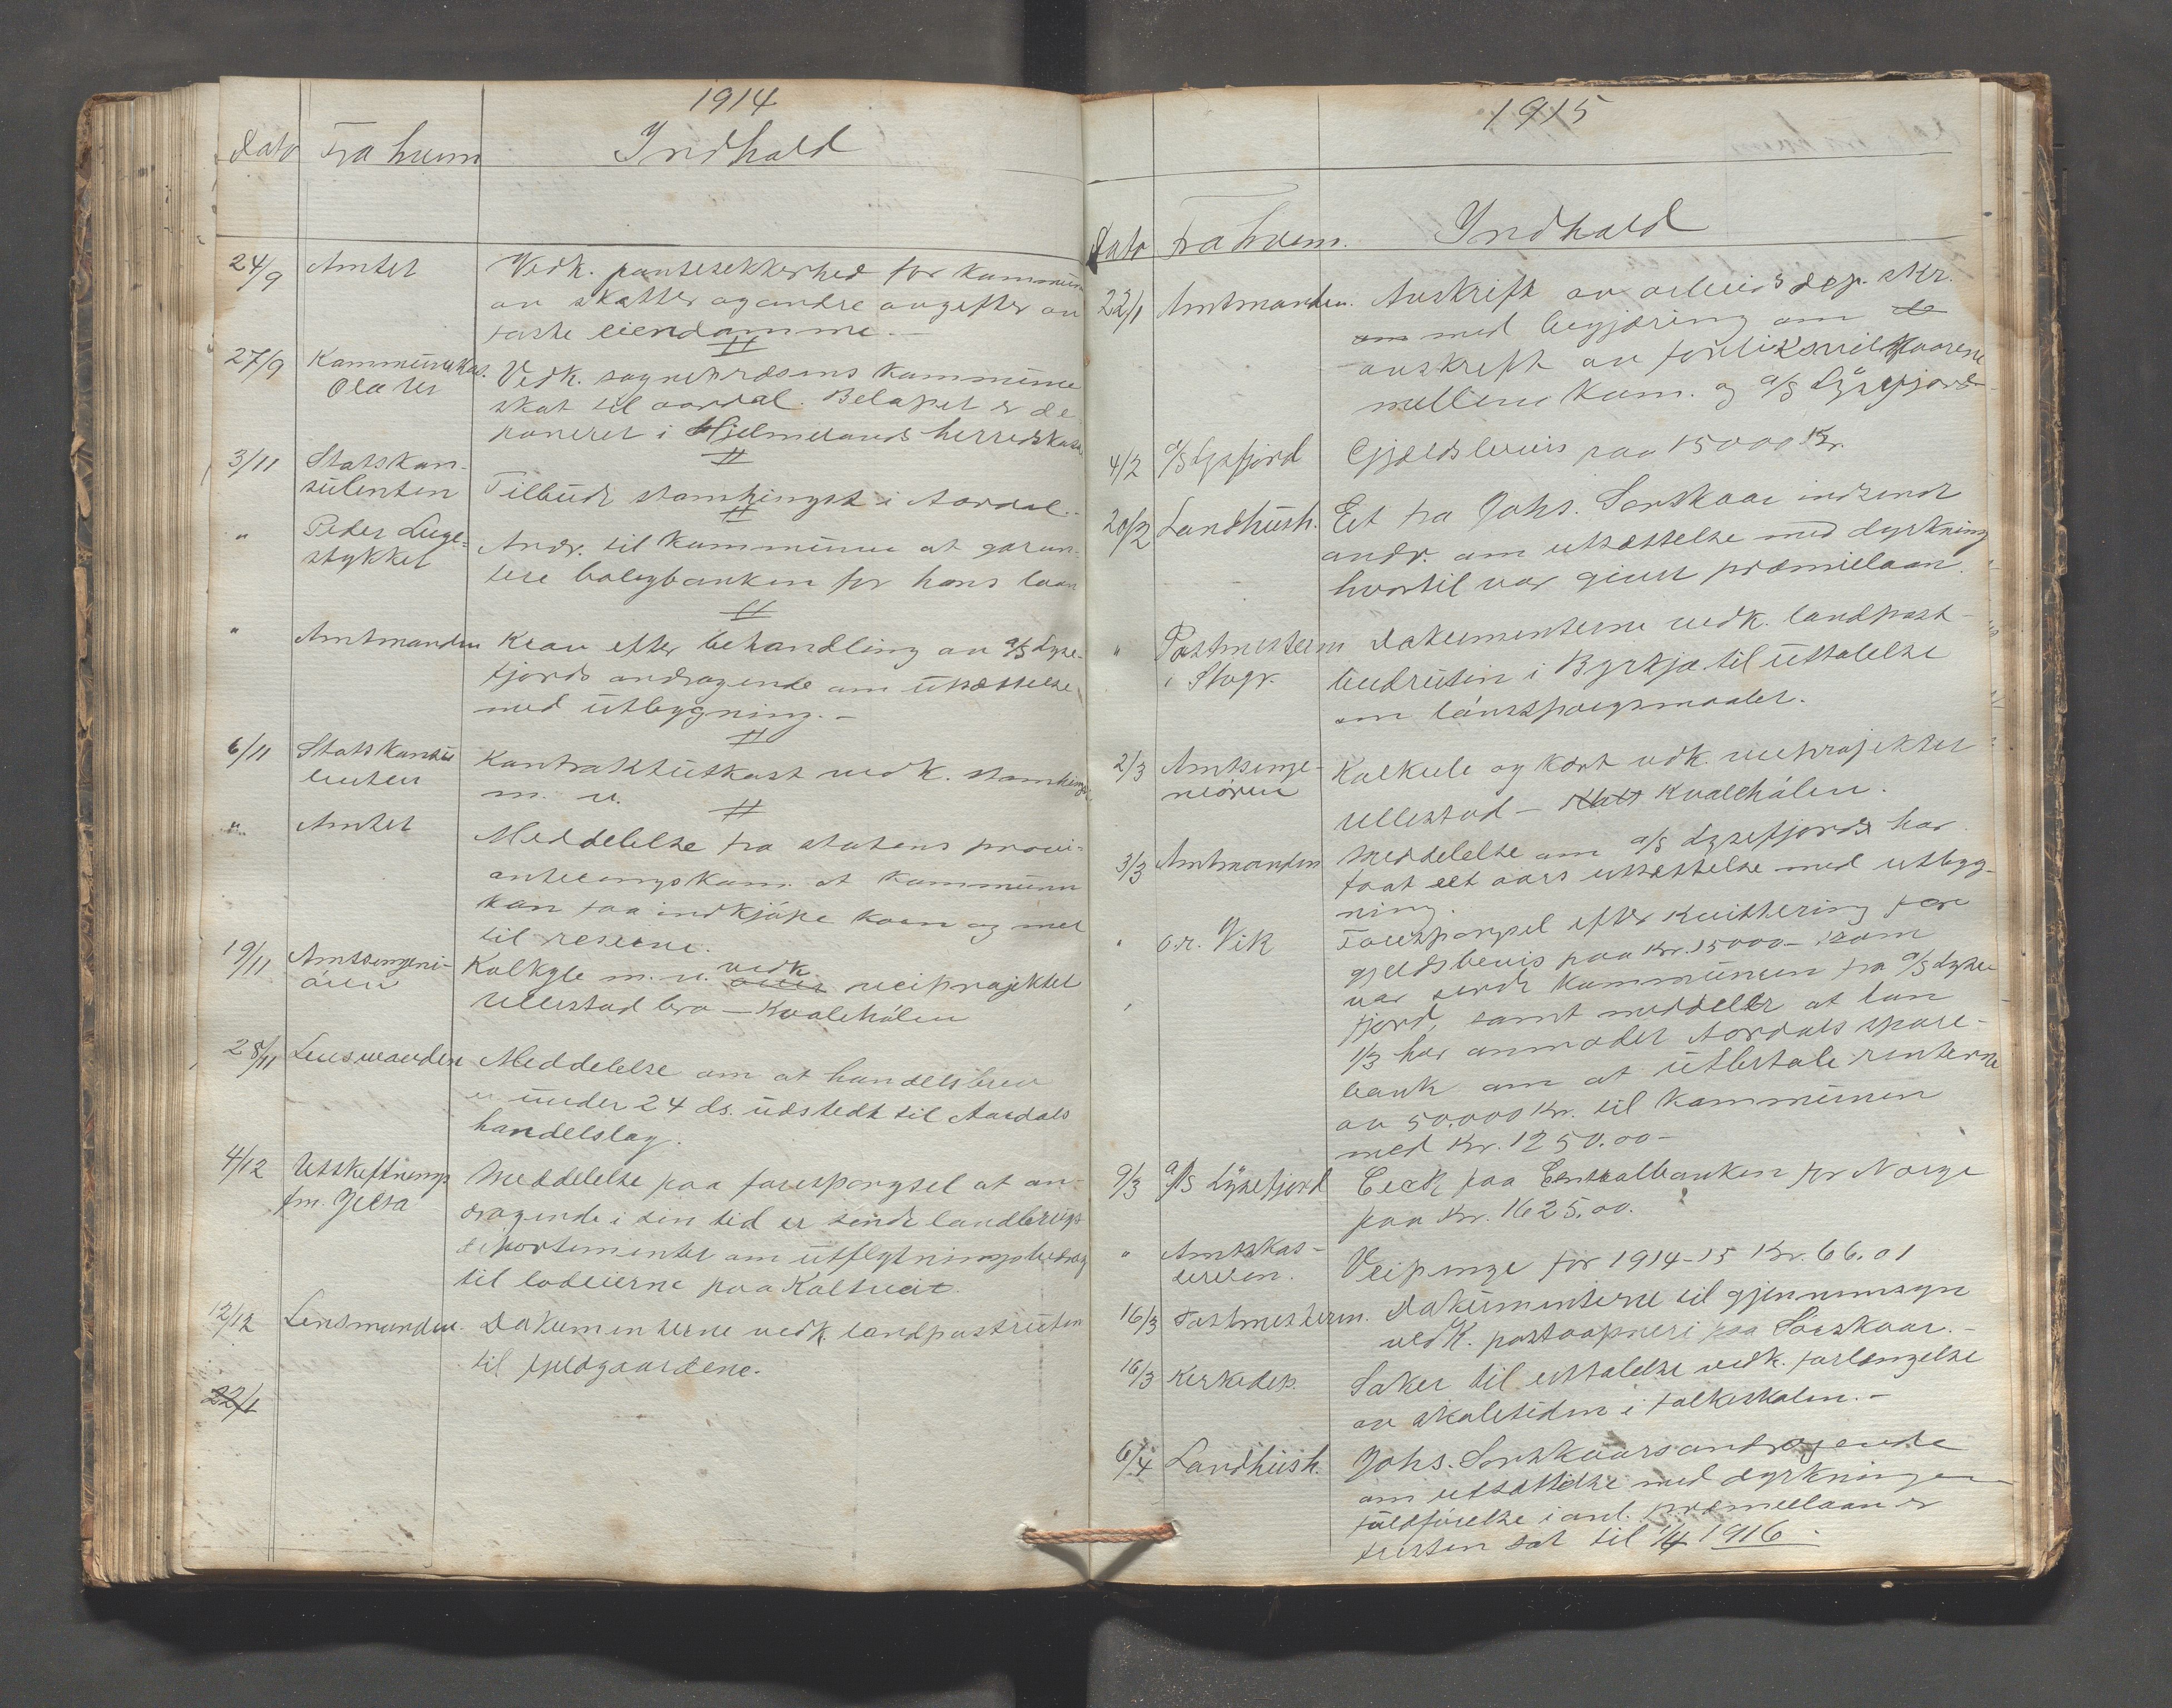 1914
Dato Fra hvem Indhold
24/9 Amtet Vedk. pantesekkerhed for kommunen
av skatter og andre avgifter av
faste eiendomme. —
27/9 Kommunekas. Vedk. sognepræsens kommune
Olater skat til aardal. Beløpet er de
poneret i Hjelmelands herredskasse
3/11 Statskon-
sulenten Tilbudt stamhingst i Aardal.-
" Peder Luge-
stykket Andr. til kommunen at garan-
tere boligbanken for hans laan
" Amtmanden Krav efter behandling av a/s Lyse-
fjords andragende om utsættelse
med utbygning. —
6/11 Statskonsu
lenten Kontraktutkast vedk. stamhingst
m. v.
" Amtet Meddelelse fra statens provi-
anteringskom. at kommunen
kan faa indkjøpe korn og mel
til reserve.
19/11 Amtsingeni-
øren Kalkyle m. v. vedk veiprosjektet
Ullestad bro — Kvalehålen
28/11 Lensmanden Meddelelse om at handelsbrev
er under 24 ds. udstedt til Aardals
handelslag.
4/12 Utskiftningsfm. Jelsa Meddelelse paa forespørgsel at an-
dragende i sin tid er sendt landbrugs
departementet om utflytningsbidrag
til lodeierne paa Kaltveit.
12/12 Lensmanden. Dokumenterne vedk landpostruten
til fjeldgaardene.
22/1
1915
Dato Fra hvem. Indhold
22/1 Amtmanden. Avskrift av arbeidsdep. skr.
om med begjæring om de
avskrift av forliksvilkaarene
mellem kom. og a/s Lysefjord
4/2 a/s Lysefjord Gjældsbevis paa 15000 Kr.
20/2 Landhush. Et fra Johs. Sørskaar indsendt
andr. om utsættelse med dyrkning
hvortil var givet præmielaan.
" Postmesteren
i Stvgr. Dokumenterne vedk. landpost-
budrutin i Byrkja til uttalelse
om lønsspørgsmaalet.
2/3 Amtsinge-
niøren Kalkule og kart vdk. veiprosjektet
Ullestad — Kvalehålen.
3/3 Amtmanden Meddelelse om a/s Lysefjords har
faat ett aars utsættelse med utbyg-
ning.
" O.r. Vik Forespørgsel efter kvittering for
gjeldsbevis paa Kr. 15000 — som
var sendt kommunen fra a/s Lyse-
fjord, samt meddeler at han
1/3 har anmodet Aardals spare-
bank om at utbetale renterne
av 50.000 Kr. til kommunen
med Kr. 1250.00 —
9/3 a/s Lysefjord Ceck paa Centralbanken for Norge
paa Kr. 1625.00.
" Amtskas-
sereren. Veipenge for 1914-15 Kr. 66.01
16/3 Postmesteren. Dokumenterne til gjennemsyn
vedk. postaapneri paa Sørskaar.
16/3 Kirkedep. Saker til uttalelse vedk. forlengelse
av skoletiden i folkeskolen. —
6/4 Landhush. Johs. Sørskaars andragende
om utsættelse med dyrkningen
fuldførelse i anl. præmielaan er
fristen sat til 1/4 1916.